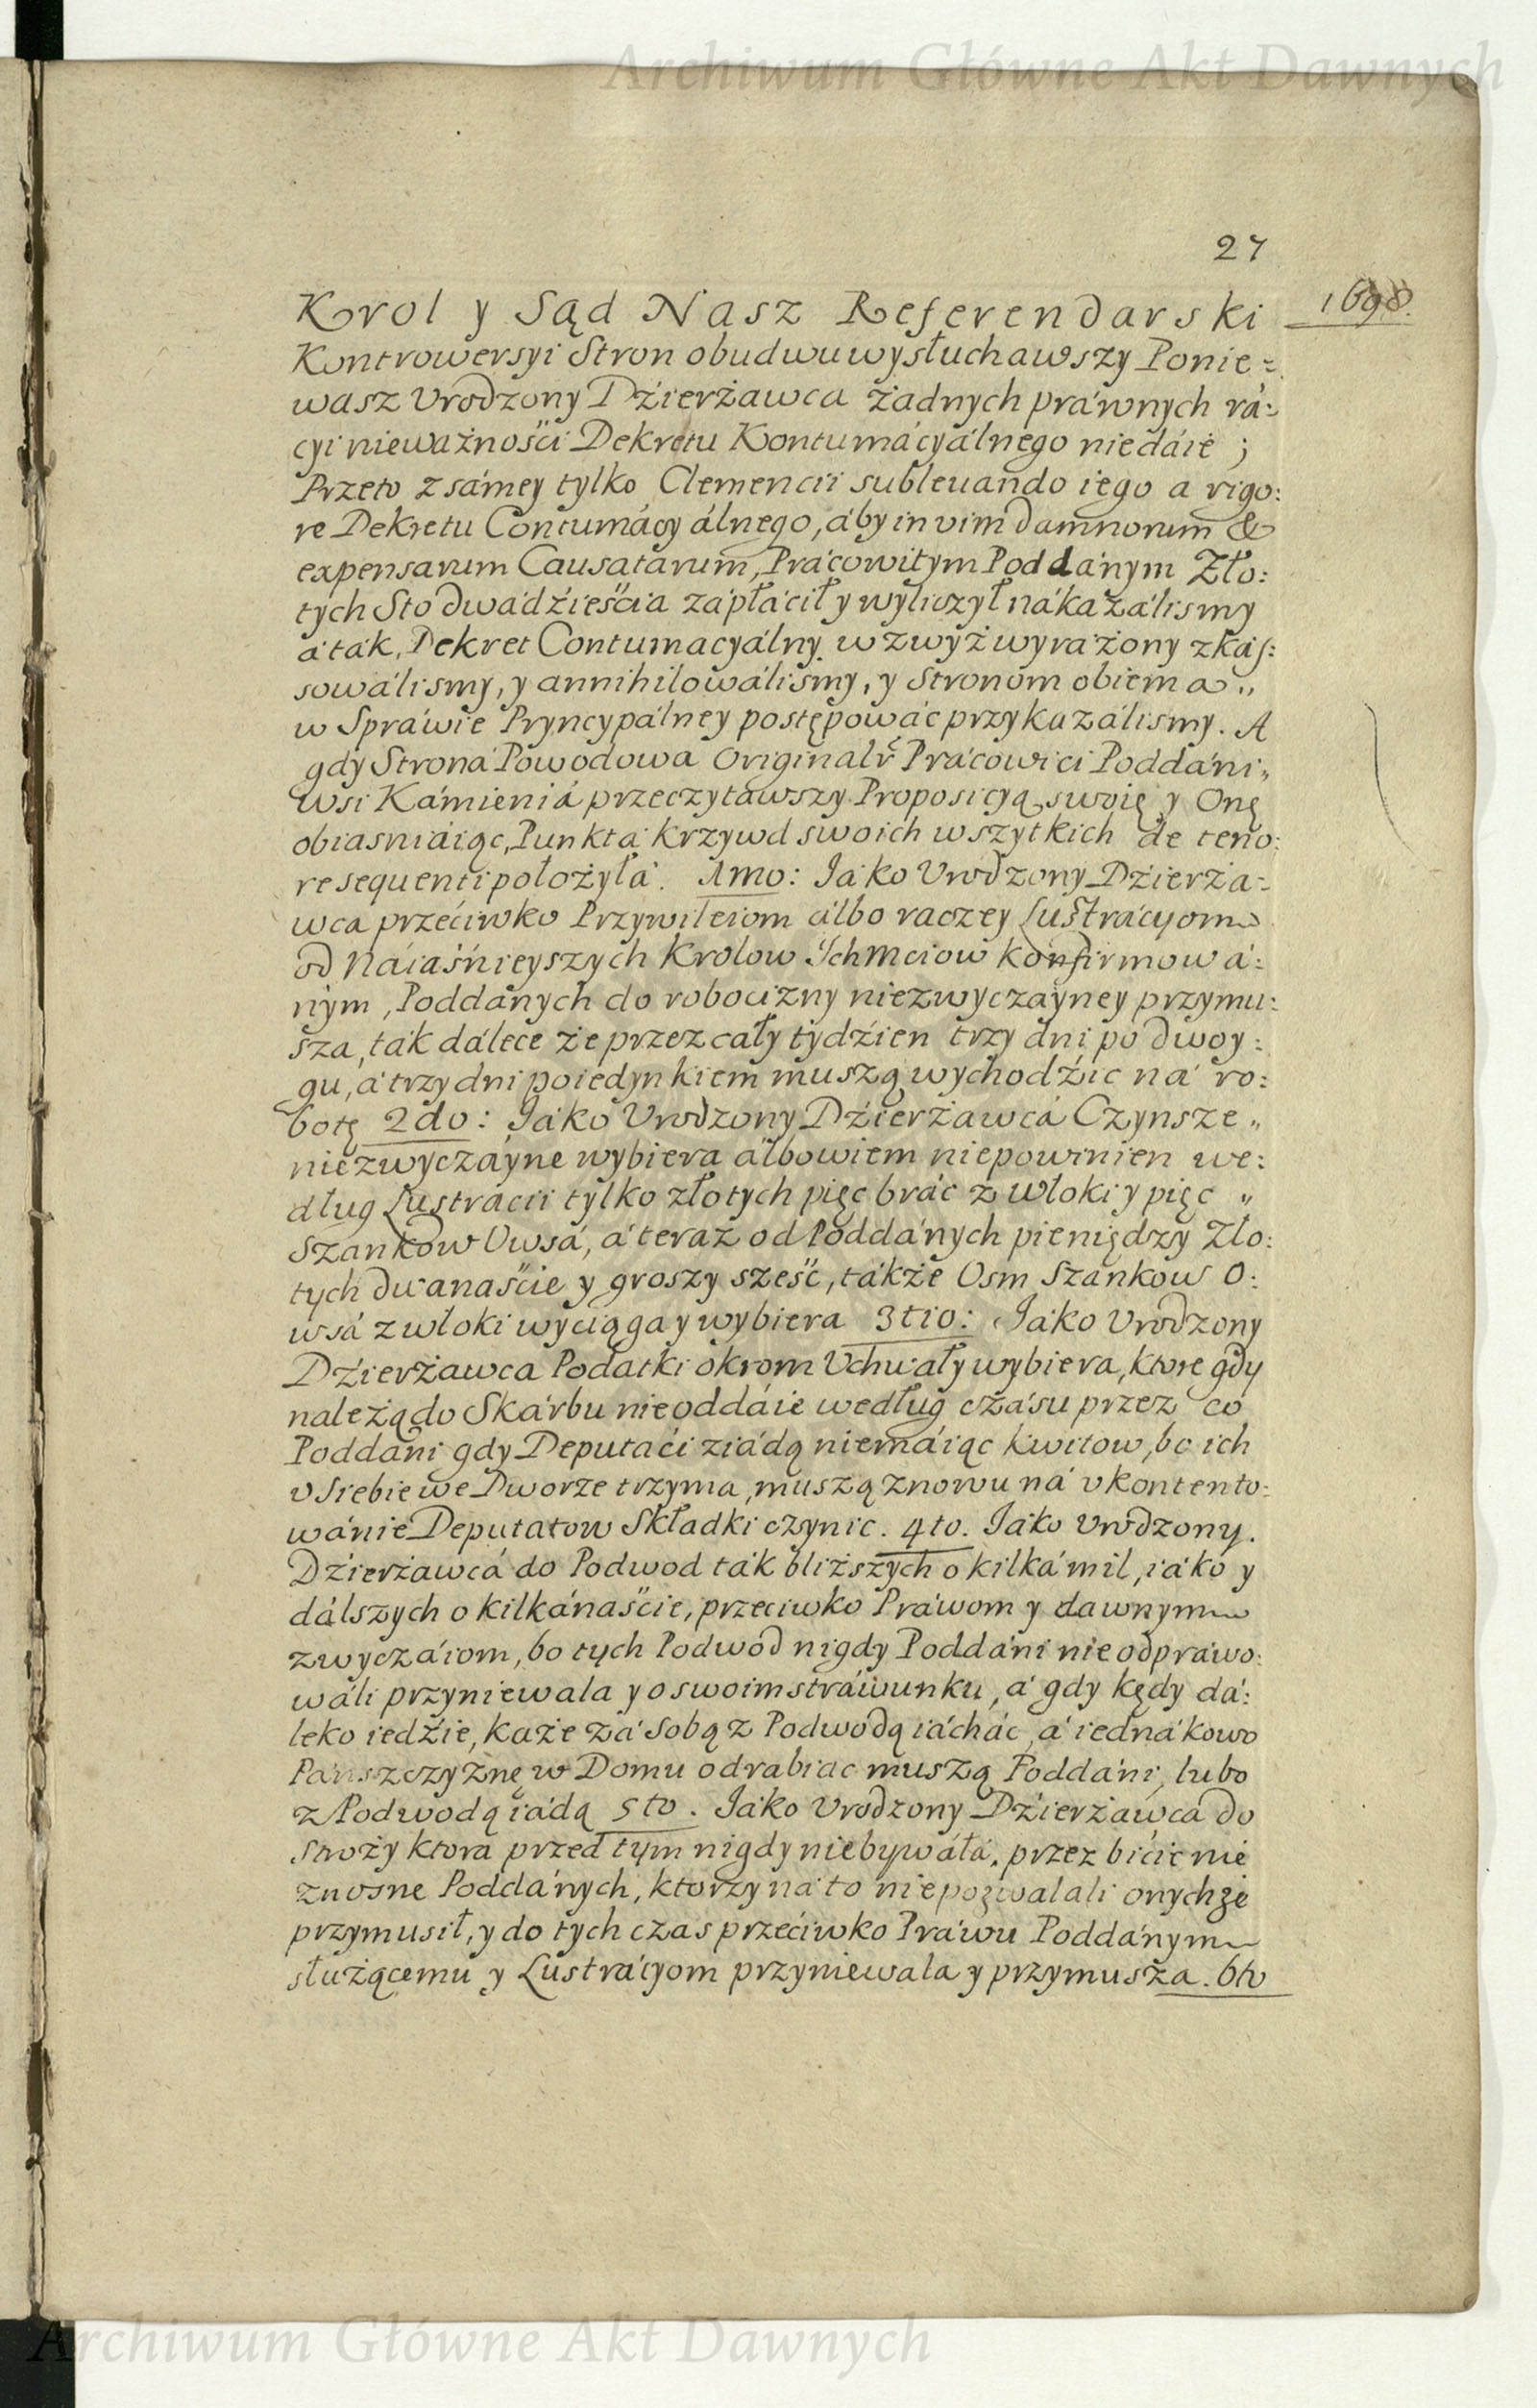 Archiwum Główne Akt Dawnych
27
1698.
Krol y Sąd Nasz Referendarski
Kontrowersyi Stron obudwu wysłuchawszy Ponie=
wasz Vrodzony Dźierżawca żadnych práwnych rá:
cyi nieważnośći Dekretu Kontumácyálnego niedáie ;
Przeto z sámey tylko Clemencii subleuando iego a rigo:
re Dekretu Contumácyálnego, áby in vim damnorum &
expensarum Causatarum, Prácowitym Poddánym Zło:
tych Sto dwádźieśćia zápłáćił y wyliczył nákazálismy
á ták, Dekret Contumacyálny wzwyż wyrażony zkás:
sowálismy, y annihilowálismy, y Stronom obiema „
w Spráwie Pryncypálney postępowáć przykazálismy. A
gdy Stroná Powodowa Originalr Prácowici Poddáni „
Wsi Kámieniá przeczytawszy Proposicyą swoię y Onę
obiasniáiąc, Punktá krzywd swoich wszytkich de teno:
re sequenti położyłá. 1mo: Iáko Vrodzony Dźierża=
wca przećiwko Przywileiom álbo raczey Lustrácyom
od Náiáśnieyszych Krolow Ichmciow konfirmowá:
nym, Poddánych do robocizny niezwyczayney przymu:
sza, ták dálece że przez cáły tydźien trzy dni po dwoy:
gu, á trzy dni poiedynkiem muszą wychodźić ná ro:
botę 2do: Iáko Vrodzony Dźierżawcá Czynsze „
niezwyczáyne wybiera álbowiem niepowinien we:
dług Lustracii tylko złotych pięć bráć z Włoki y pięć „
Szankow Owsá, á teraz od Poddánych pieniędzy Zło:
tych dwanaśćie y groszy sześć, tákże Osm Szánkow O:
wsá z włoki wyciąga y wybiera 3tio: Iáko Vrodzony
Dźierżawca Podatki okrom Vchwały wybiera, ktore gdy
należą do Skárbu nieoddáie według czásu przez co
Poddáni gdy Deputaći ziádą niemáiąc kwitow, bo ich
v Siebie we Dworze trzyma, muszą znowu ná vkontento:
wánie Deputatow Składki czynic. 4to. Iáko Vrodzony.
Dźierżawcá do Podwod ták bliższych o kilká mil, iáko y
dálszych o kilkánaśćie, przeciwko Práwom y dawnym
zwyczáiom, bo tych Podwod nigdy Poddáni nie odpráwo:
wáli przyniewala y o swoim stráwunku, á gdy kędy dá:
leko iedźie, każe zá Sobą z Podwodą iácháć, á iednákowo
Pańszczyżnę w Domu odrabiac muszą Poddáni, lubo
z Podwodą iádą 5to. Iáko Vrodzony Dźierżawca do
Stroży ktora przed tym nigdy niebywáłá. przez bićie nie
znosne Poddánych, ktorzy ná to niepozwalali onychże
przymusił, y do tych czas przećiwko Práwu Poddánym
służącemu y Lustrácyom przyniewala y przymusza. 6to
Archiwum Główne Akt Dawnych